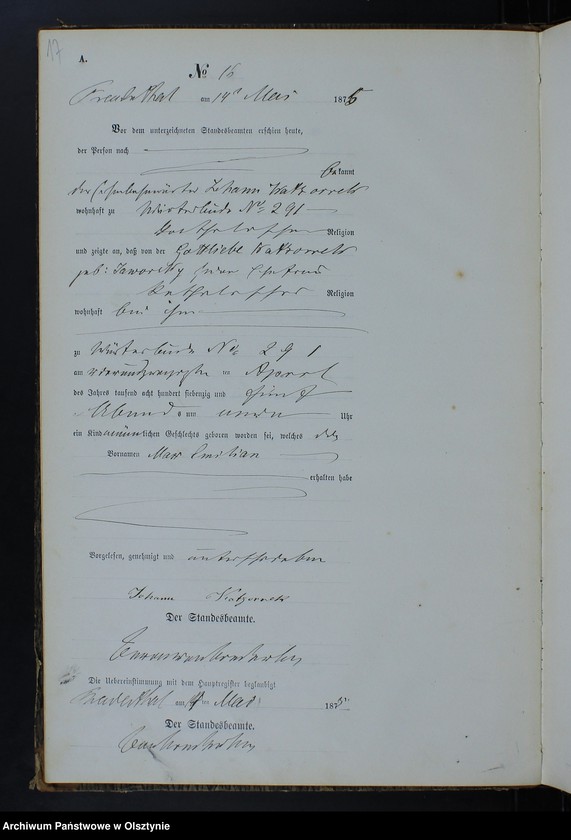 17
A.
No 16
Freudenthal am 14n Mai 1875
Vor dem unterzeichneten Standesbeamten erschien heute,
der Person nach
bekannt
der Johann
wohnhaft zu Wärterbude No 291
Katholischer Religion
und zeigte an, daß von der Gottliebe
geb: seiner Ehefrau
Katholischer Religion
wohnhaft bei ihm
zu Wärterbude No 291
am vierundzwanzigsten im April
des Jahres tausend acht hundert siebenzig und fünf
Abends um neun Uhr
ein Kind männlichen Geschlechts geboren worden sei, welches den
Vornamen Max Emilian
erhalten habe
Vorgelesen, genehmigt und unterschrieben
Johann
Der Standesbeamte.
Die Uebereinstimmung mit dem Hauptregister beglaubigt
Freudenthal am ten Mai 1875
Der Standesbeamte.
Archiwum Państwowe w Olsztynie